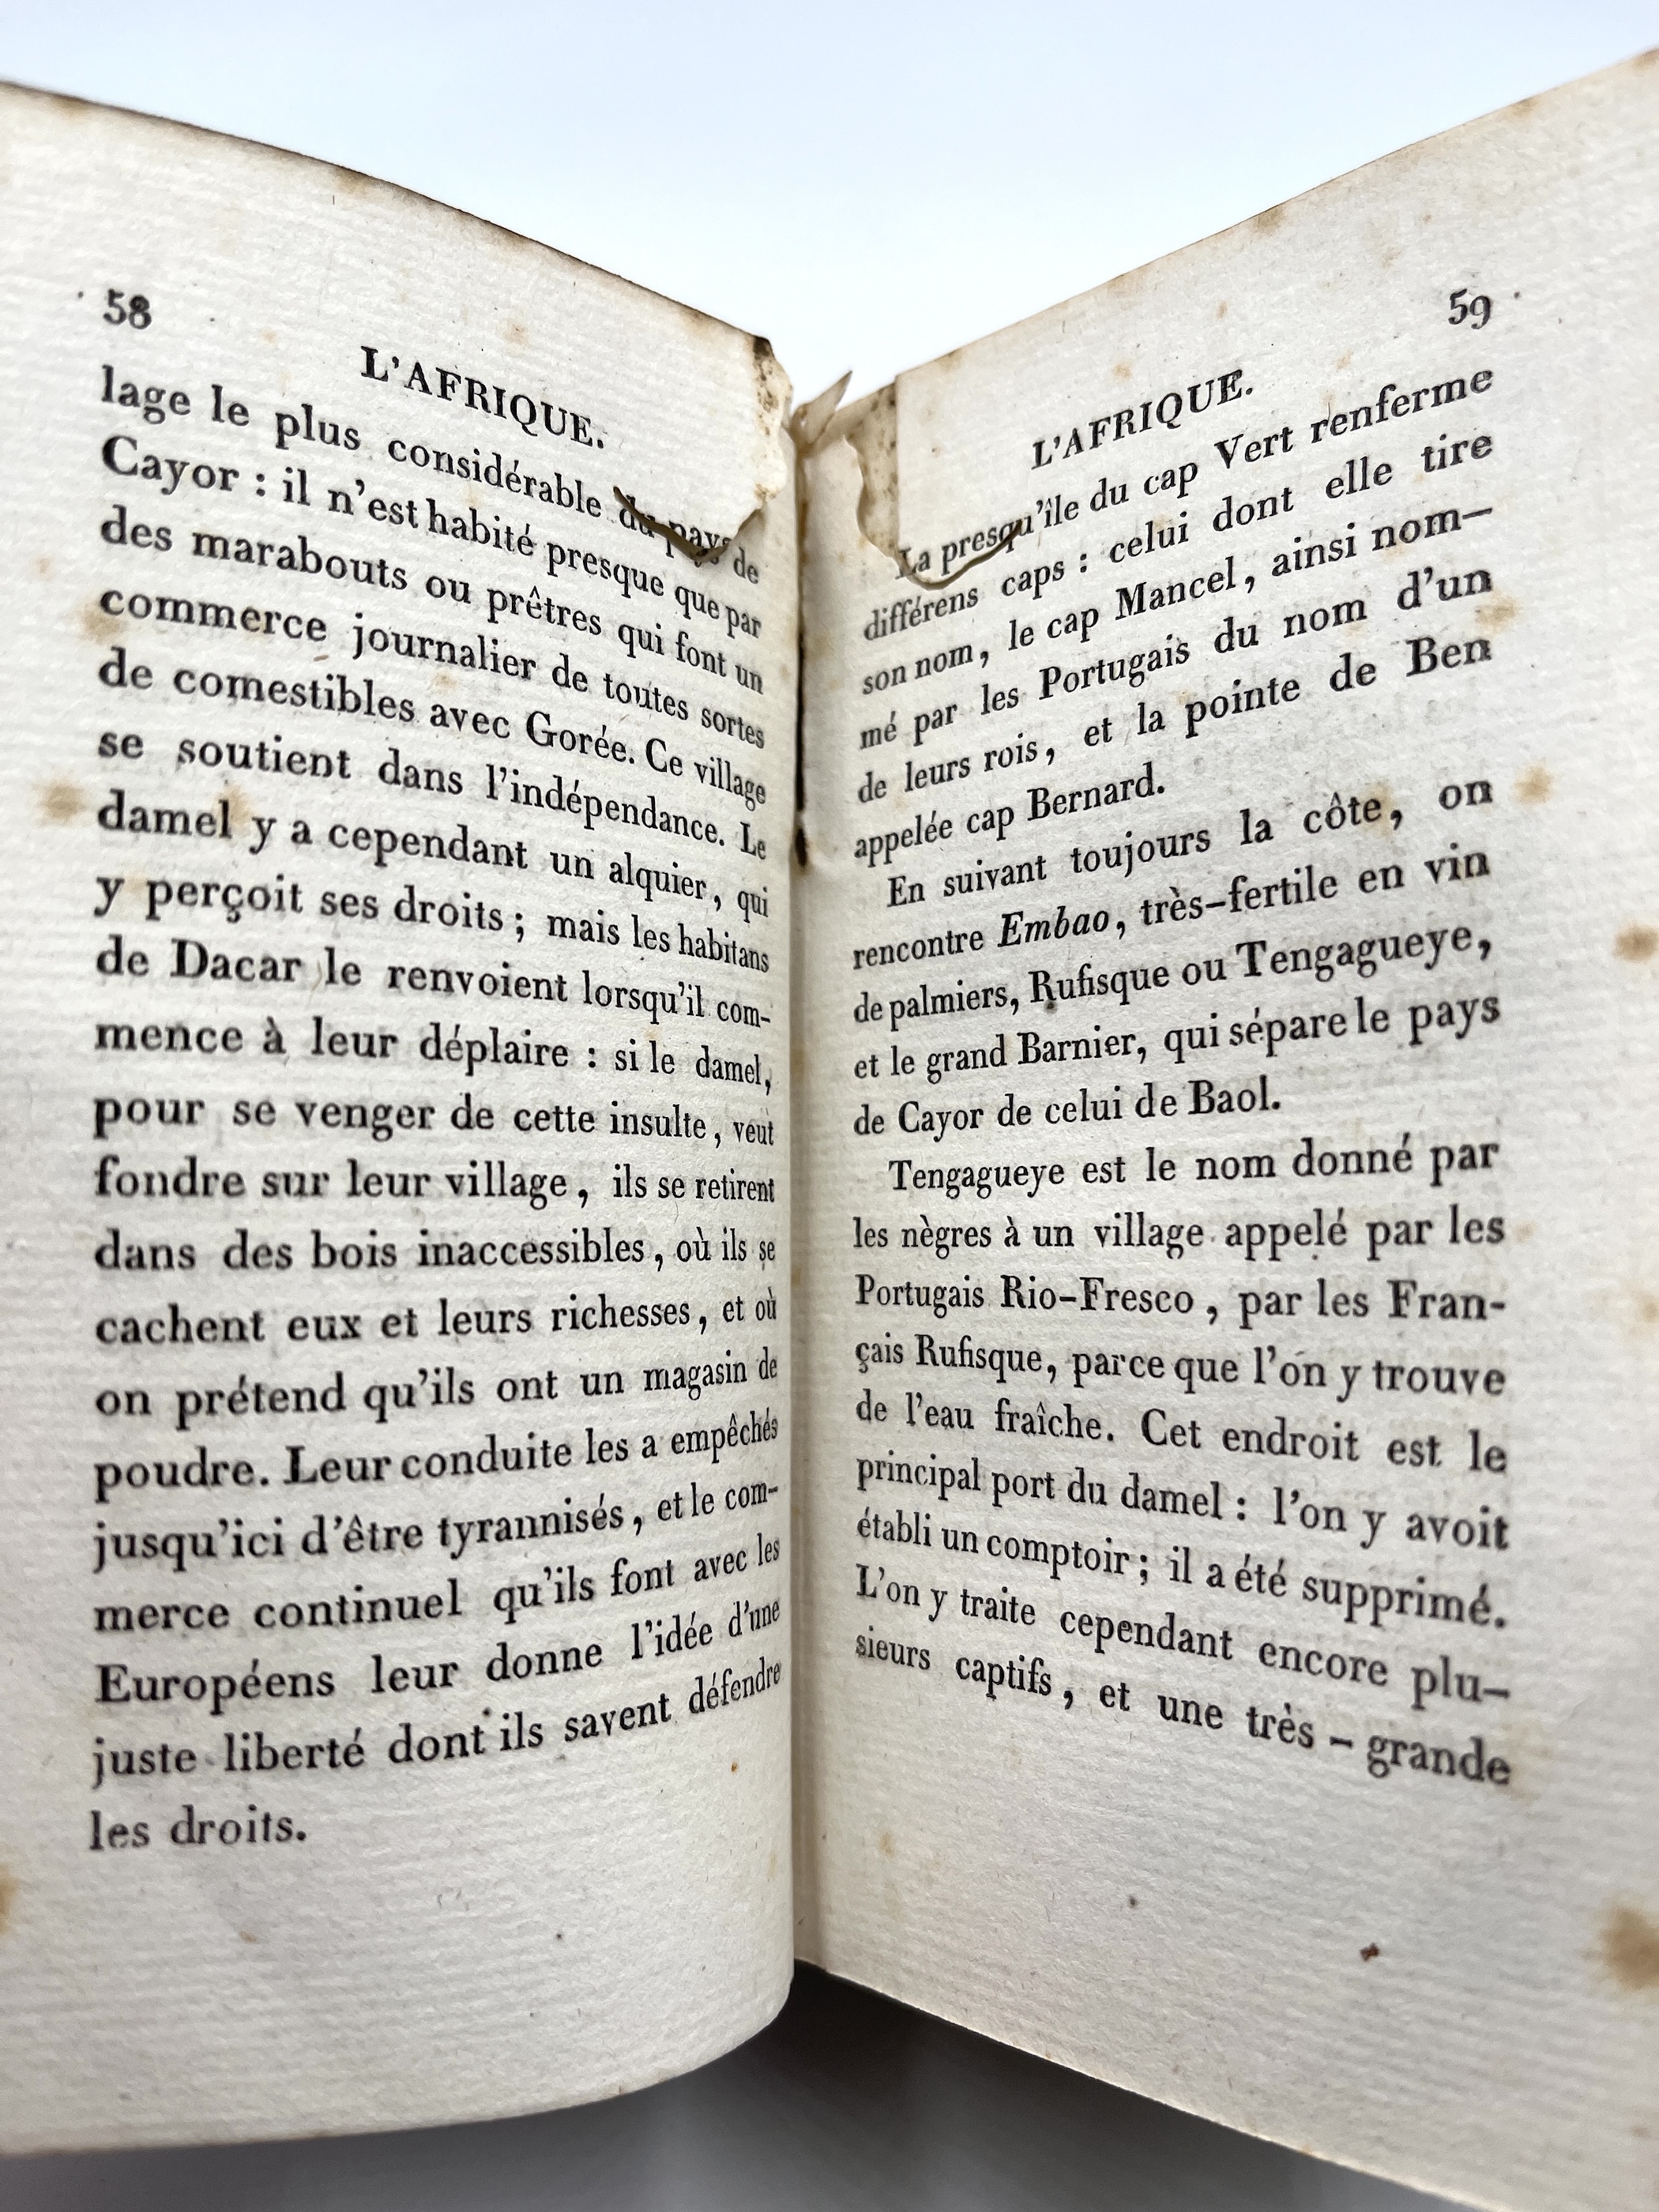 58
L'AFRIQUE.
lage le plus considérable du pays de
Cayor : il n'est habité presque que par
des marabouts ou prêtres qui font un
commerce journalier de toutes sortes
de comestibles avec Gorée. Ce village
se soutient dans l'indépendance. Le
damel y a cependant un alquier, qui
y perçoit ses droits ; mais les habitans
de Dacar le renvoient lorsqu'il com-
mence à leur déplaire : si le damel,
pour se venger de cette insulte, veut
fondre sur leur village, ils se retirent
dans des bois inaccessibles, où ils se
cachent eux et leurs richesses, et où
on prétend qu'ils ont un magasin de
poudre. Leur conduite les a empêchés
jusqu'ici d'être tyrannisés, et le com-
merce continuel qu'ils font avec les
Européens leur donne l'idée d'une
juste liberté dont ils savent défendre
les droits.
59
L'AFRIQUE.
La presqu'île du cap Vert renferme
différens caps : celui dont elle tire
son nom, le cap Mancel, ainsi nom-
mé par les Portugais du nom d'un
de leurs rois, et la pointe de Ben
appelée cap Bernard.
En suivant toujours la côte, on
rencontre Embao, très-fertile en vin
de palmiers, Rufisque ou Tengagueye,
et le grand Barnier, qui sépare le pays
de Cayor de celui de Baol.
Tengagueye est le nom donné par
les nègres à un village appelé par les
Portugais Rio-Fresco, par les Fran-
çais Rufisque, parce que l'on y trouve
de l'eau fraîche. Cet endroit est le
principal port du damel : l'on y avoit
établi un comptoir ; il a été supprimé.
L'on y traite cependant encore plu-
sieurs captifs, et une très-grande